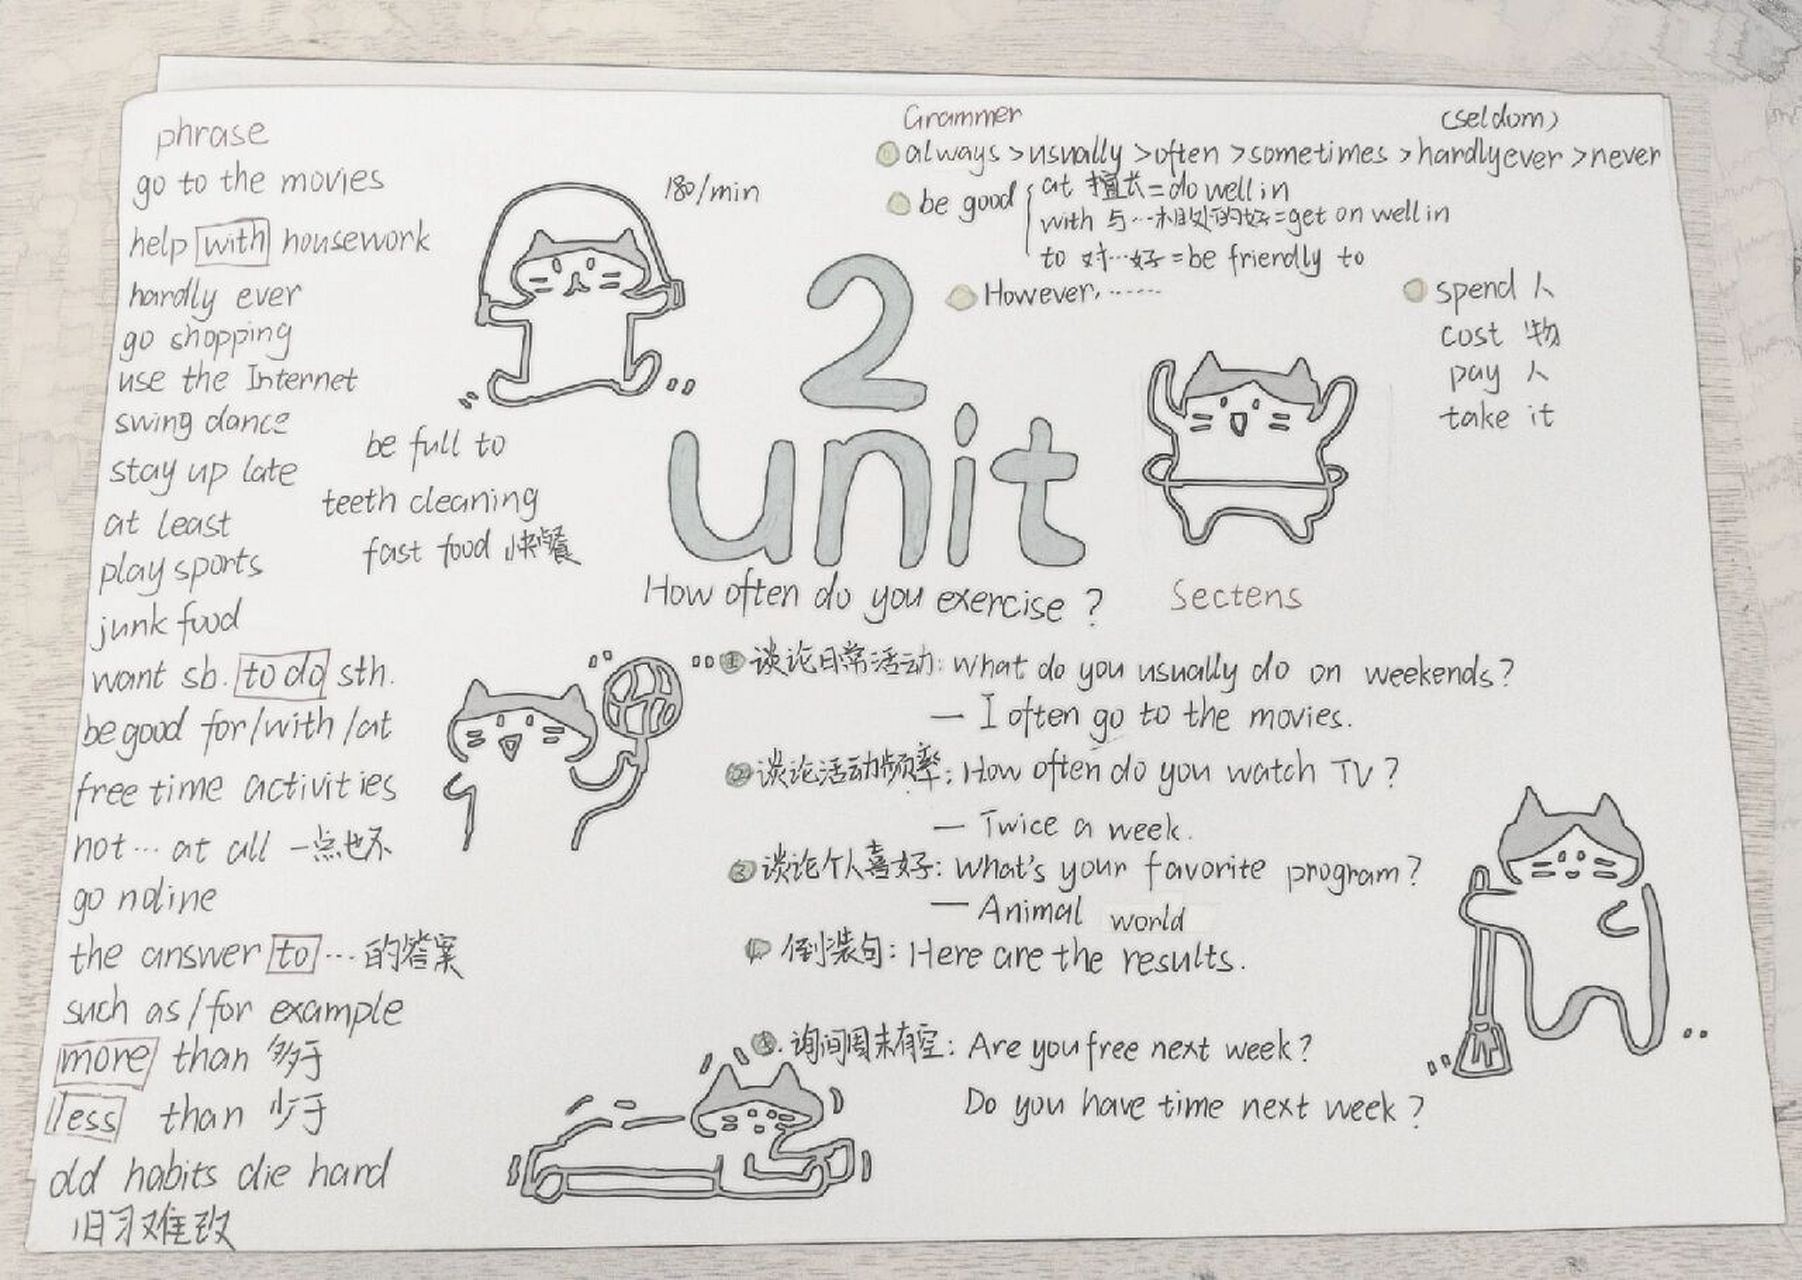 phrase
go to the movies
help with housework
hardly ever
go shopping
use the Internet
swing dance
stay up late
at least
play sports
junk food
want sb. to do sth.
be good for/with/at
free time activities
not… at all 一点也不
go noline
the answer to …的答案
such as/for example
more than 多于
less than 少于
old habits die hard
旧习难改
be full to
teeth cleaning
fast food 快餐
180/min
2
unit
How often do you exercise?
Grammer
(seldom)
always>usually>often>sometimes>hardlyever>never
be good
at 擅长=do well in
with 与…相处的好=get on well in
to 对…好=be friendly to
However,……
spend 人
cost 物
pay 人
take it
Sectens
① 谈论日常活动: What do you usually do on weekends?
— I often go to the movies.
② 谈论活动频率: How often do you watch TV?
— Twice a week.
③ 谈论个人喜好: What's your favorite program?
— Animal world
倒装句: Here are the results.
询问周末有空: Are you free next week?
Do you have time next week?